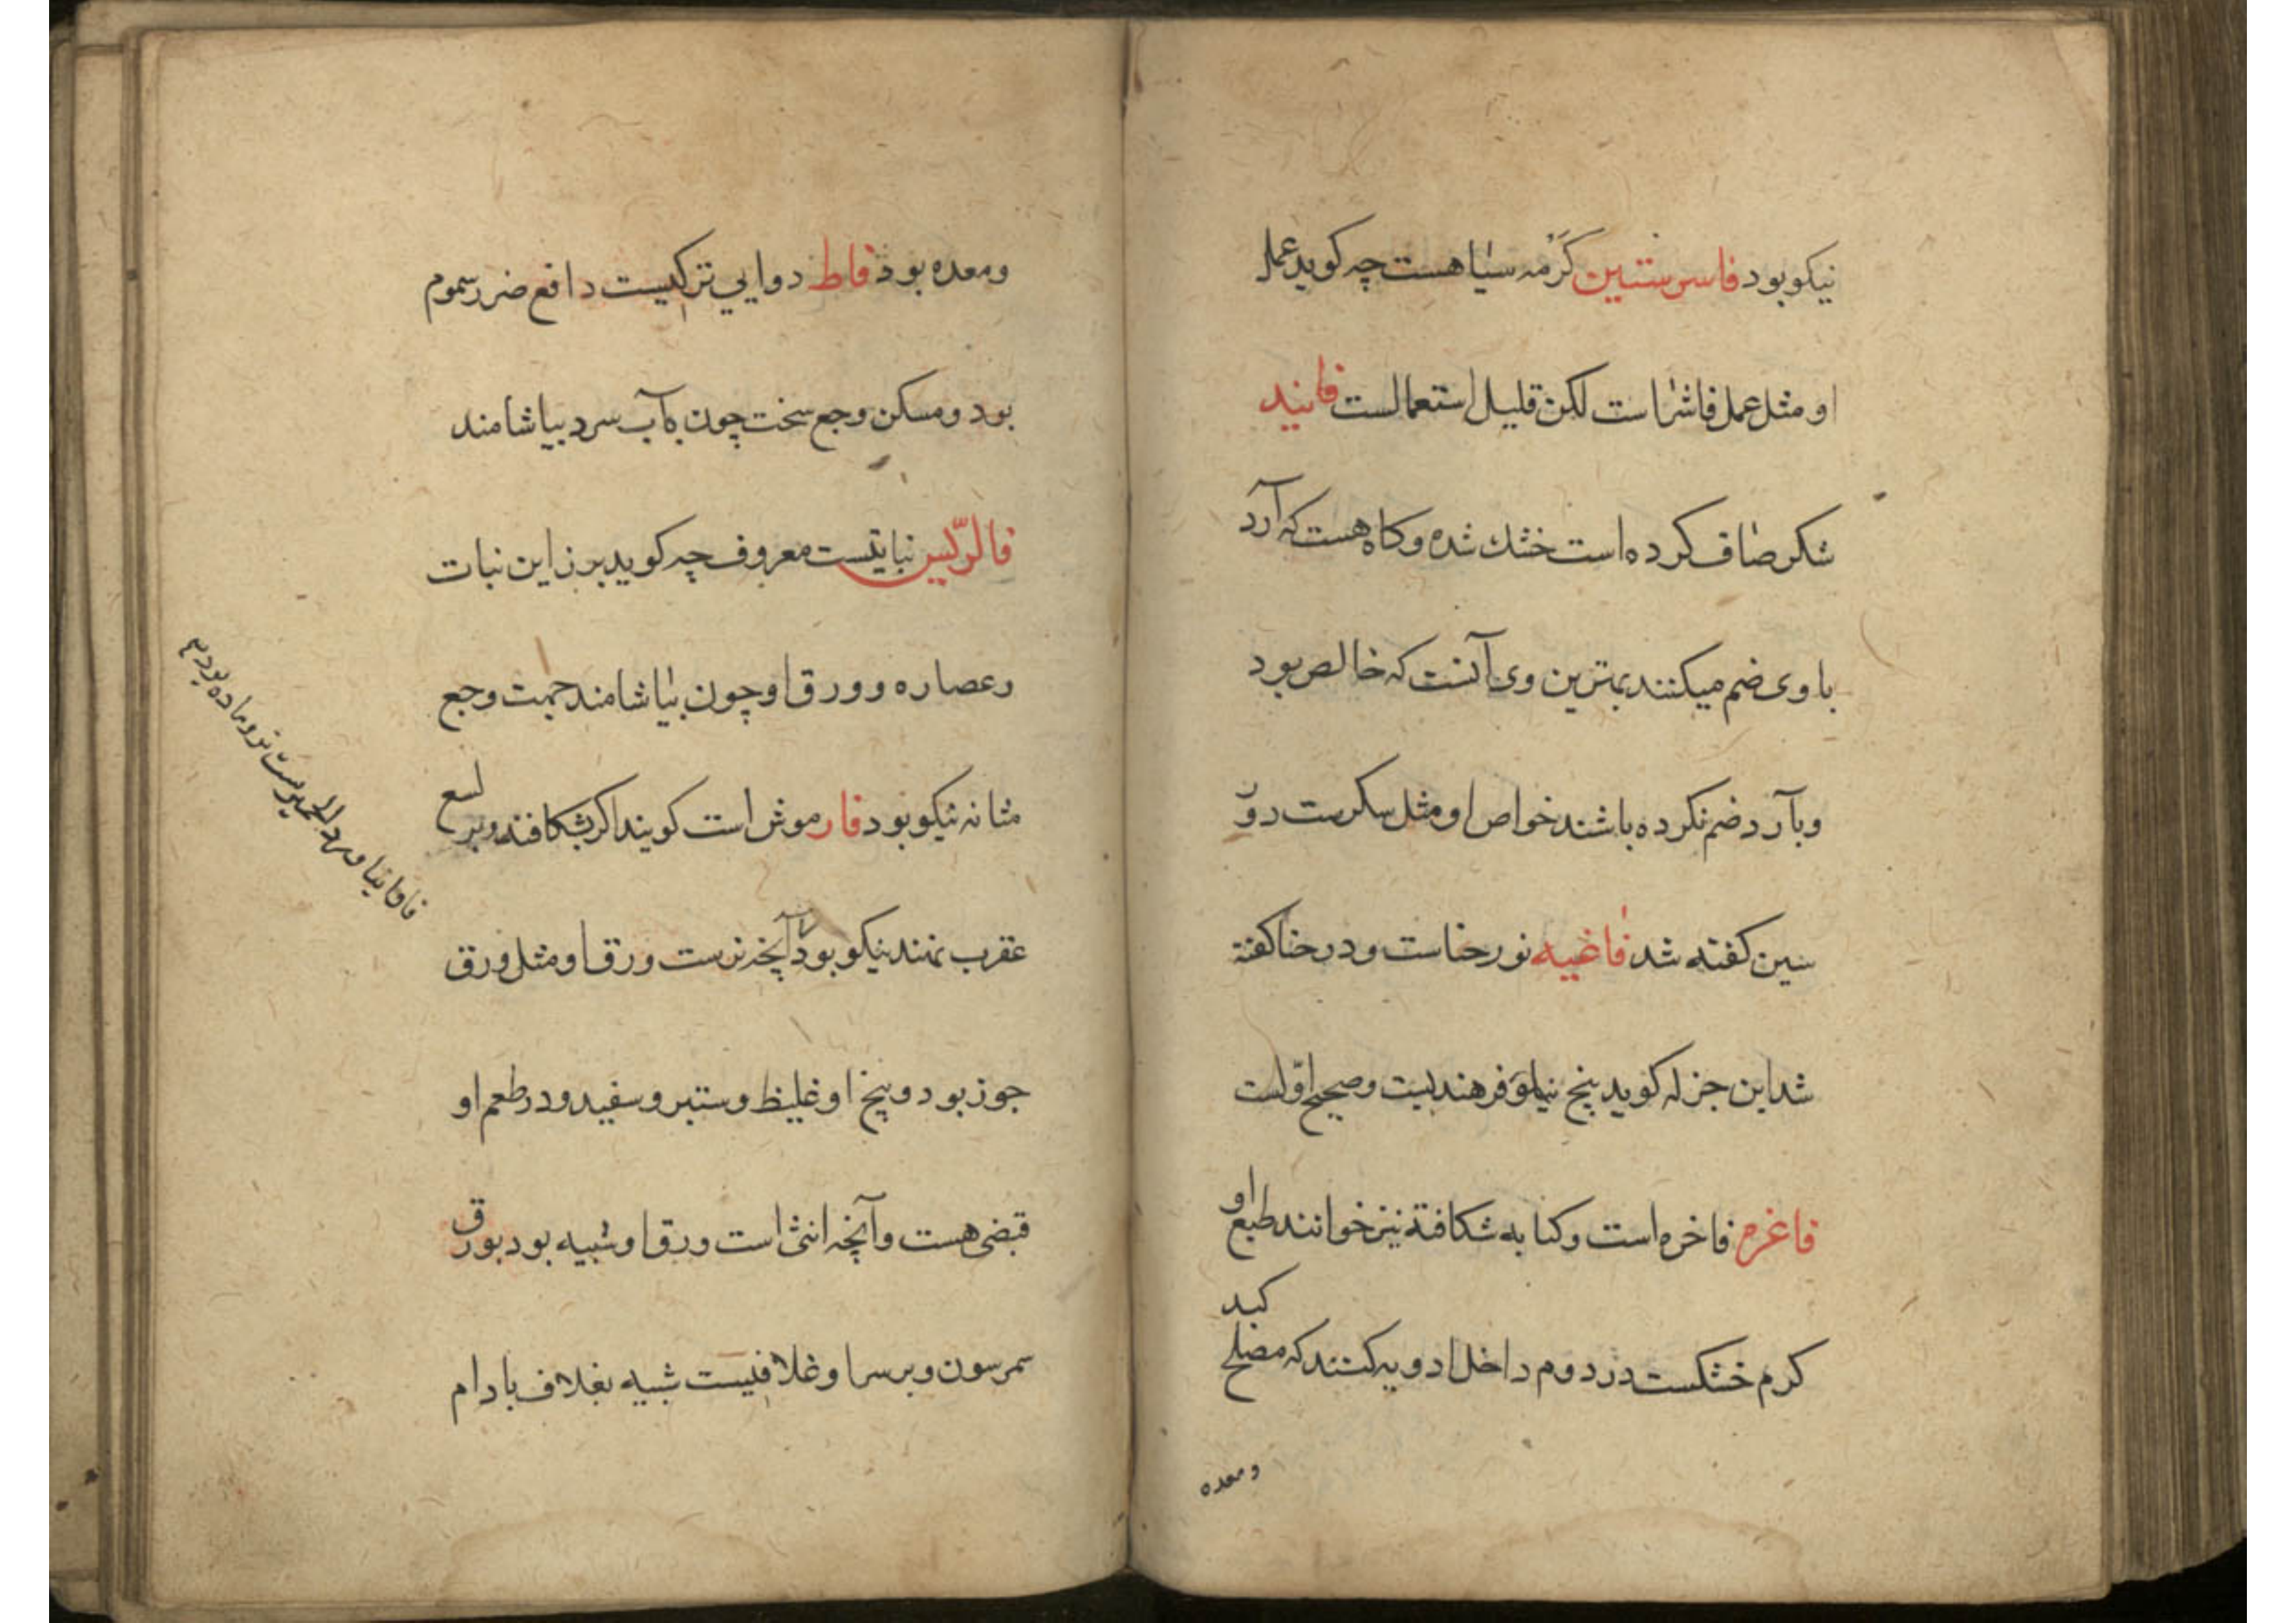 نیکو بود فاسرستین کَرْمه سیاهست چه کوید عمل
او مثل عمل فاشرا است لکن قلیل استعمالست فانید
شکر صاف کرده است خشک شده و کاه هست که آرد
با وی ضم میکنند بهترین وی آنست که خالص بود
و بآرد ضم نکرده باشند خواص او مثل سکرست در
سین کفته شد فاغیه نور حناست و در حنا کفته
شد ابن جزله کوید بیخ نیلوفر هندیست و صحیح اوّلست
فاغره فاخره است و کبابه شکافته نیز خوانند طبع او
کرم خشکست در دوم داخل ادویه کنند که مصلح کبد
ومعده
ومعده بود فاط دوایی ترکیست دافع ضرر سموم
بود و مسکن وجع سخت چون بآب سرد بیاشامند
فالرّیس نباتیست معروف چه کوید بزر این نبات
وعصاره و ورق او چون بیاشامند جهت وجع
مثانه نیکو بود فار موش است کویند اکر بشکافند و بر لسع
عقرب نهند نیکو بود آنچه نرست ورق او مثل ورق
جوز بود و بیخ او غلیظ و ستبر و سفید و در طعم او
قبضی هست و آنچه انثی است ورق او شبیه بود بورق
سمرسون و بر سر او غلافیست شبیه بغلاف بادام
فاوانیا نر و ماده بود